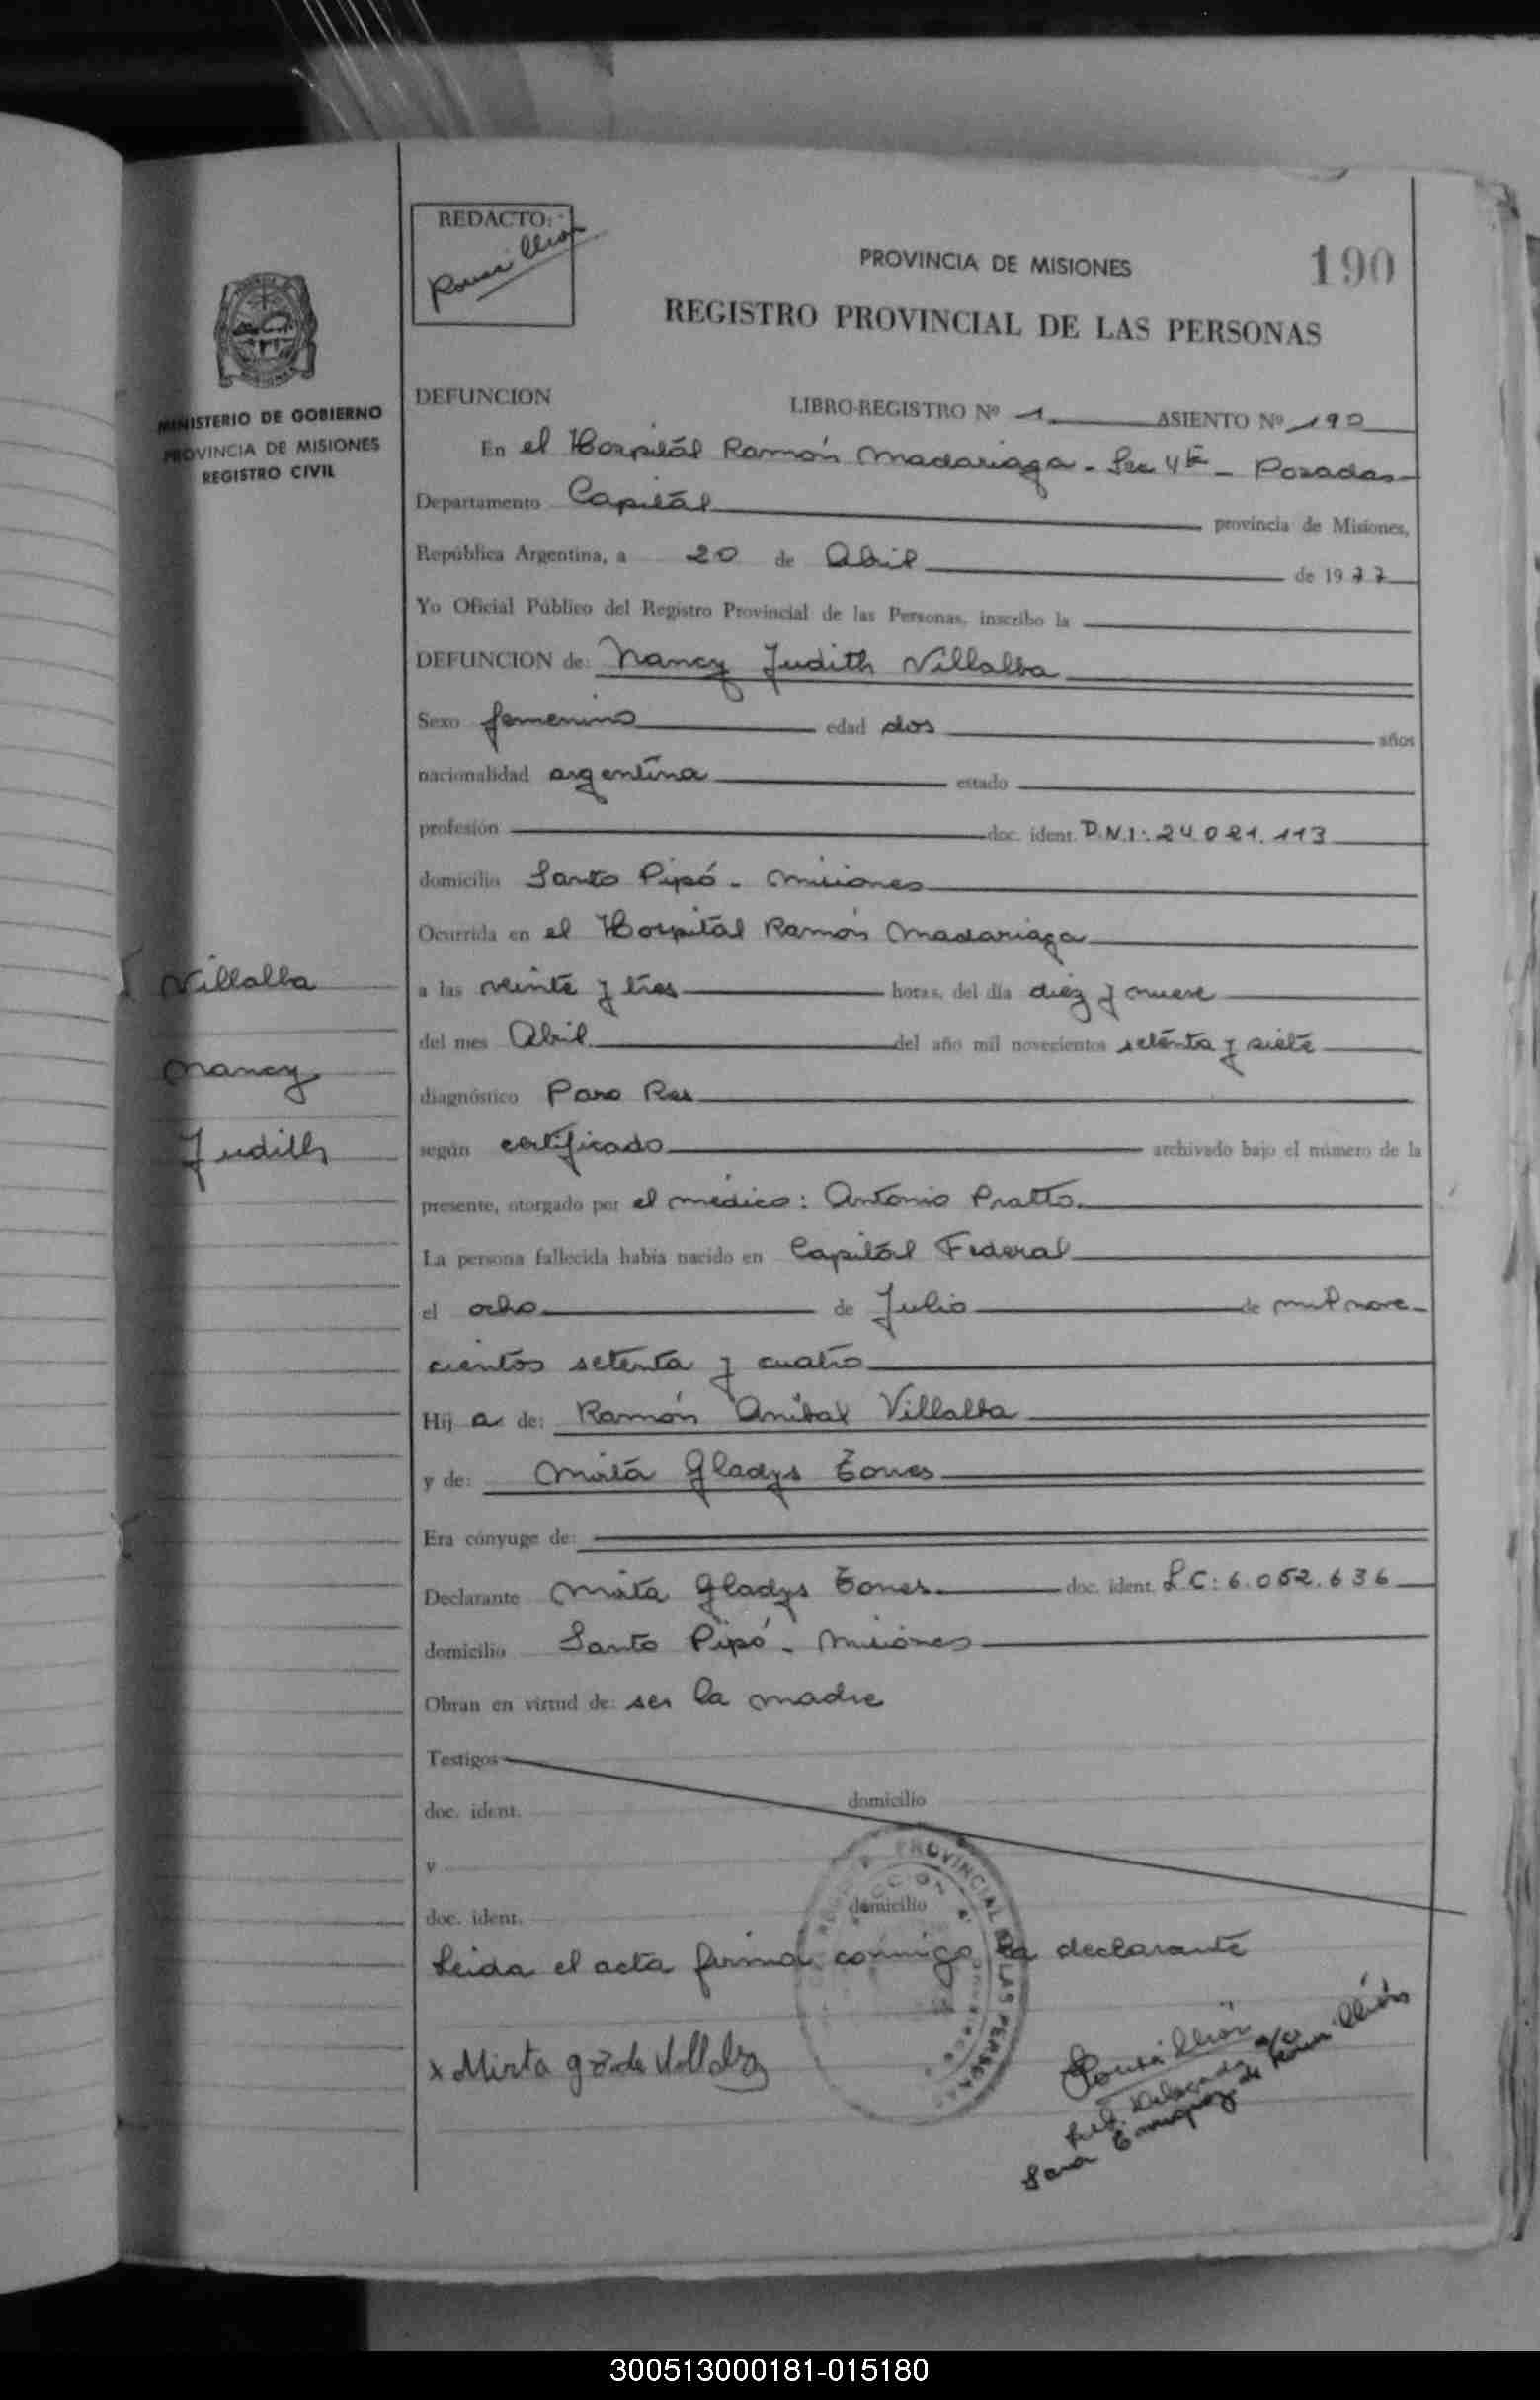 REDACTO:
PROVINCIA DE MISIONES
190
REGISTRO PROVINCIAL DE LAS PERSONAS
MINISTERIO DE GOBIERNO
PROVINCIA DE MISIONES
REGISTRO CIVIL
DEFUNCION
LIBRO-REGISTRO Nº 1 ASIENTO Nº 190
En el Hospital Ramón Madariaga - Sec 4ta - Posadas
Departamento Capital provincia de Misiones,
República Argentina, a 20 de Abril de 1977
Yo Oficial Público del Registro Provincial de las Personas, inscribo la
DEFUNCION de: Nancy Judith Villalba
Sexo femenino edad dos años
nacionalidad argentina estado
profesión doc. ident. D.N.I.: 24.021.113
domicilio Santo Pipó - Misiones
Ocurrida en el Hospital Ramón Madariaga
Villalba
a las veinte y tres horas, del día diez y nueve
del mes Abril del año mil novecientos setenta y siete
Nancy
diagnóstico Paro Res
Judith
según certificado archivado bajo el número de la
presente, otorgado por el médico: Antonio Pratto.
La persona fallecida había nacido en Capital Federal
el ocho de Julio de mil nove-
cientos setenta y cuatro
Hij a de: Ramón Anibal Villalba
y de: Mirta Gladys Torres
Era cónyuge de:
Declarante Mirta Gladys Torres doc. ident. L.C: 6.052.636
domicilio Santo Pipó - Misiones
Obran en virtud de: ser la madre
Testigos
doc. ident. domicilio
y
doc. ident. domicilio
Leida el acta firma conmigo la declarante
x Mirta de Villalba
PROVINCIAL DE LAS PERSONAS
Sara
300513000181-015180